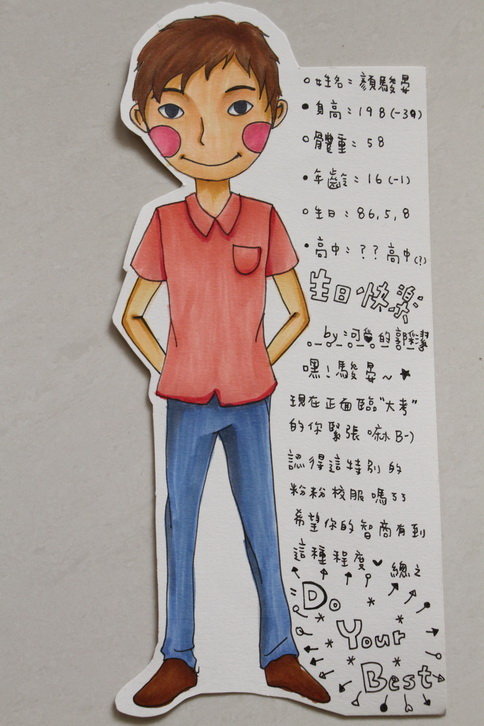 姓名：顏駿晏
身高：198(-30)
體重：58
年齡：16(-1)
生日：86,5,8
高中：??高中(?)
生日快樂
by河的郭潔
嘿！駿晏～★
現在正面臨"大考"
的你緊張嘛B-)
認得這特別的
粉粉校服嗎ㄎㄎ
希望你的智商有到
這種程度♥總之
Do
Your
Best